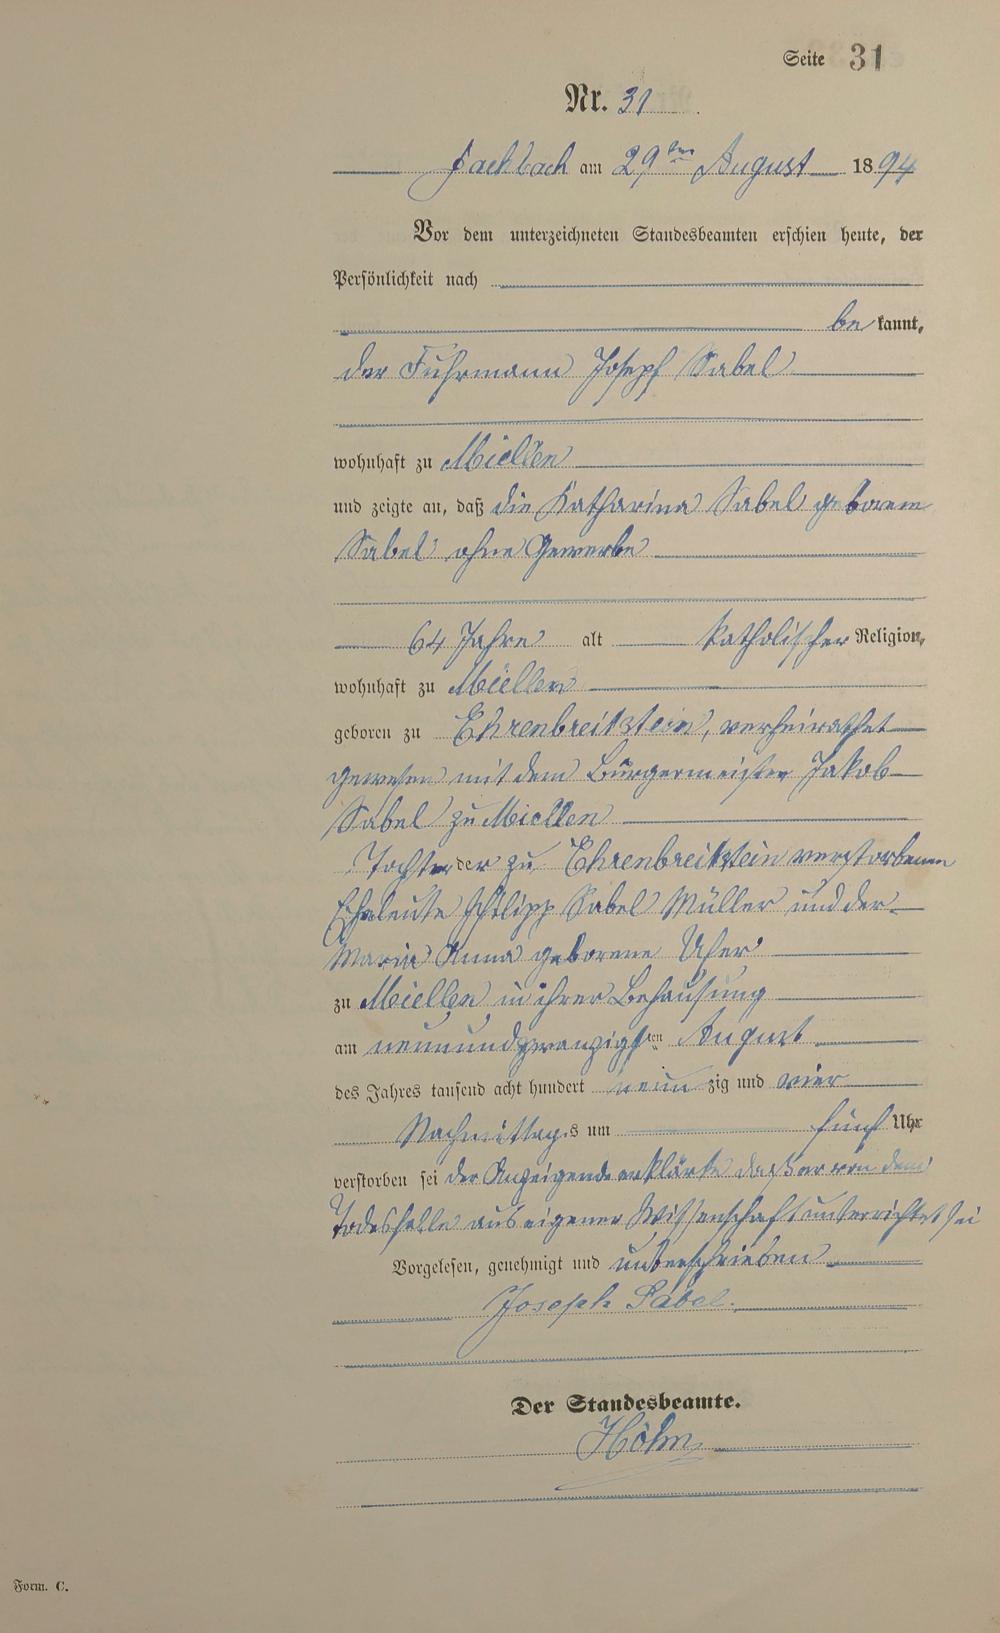 Seite 31
Nr. 31
Fachbach am 29ten August 1894
Vor dem unterzeichneten Standesbeamten erschien heute, der
Persönlichkeit nach
be kannt,
der Fuhrmann Joseph Sabel
wohnhaft zu Miellen
und zeigte an, daß die Katharina Sabel geborene
Sabel ohne Gewerbe
64 Jahre alt katholischer Religion,
wohnhaft zu Miellen
geboren zu Ehrenbreitstein, verheirathet
gewesen mit dem Bürgermeister Jakob
Sabel zu Miellen
Tochter der zu Ehrenbreitstein verstorbenen
Eheleute Philipp Sabel Müller und der
Maria Anna geborene
zu Miellen in ihrer Behausung
am neunundzwanzigsten August
des Jahres tausend acht hundert neun zig und vier
Nachmittags um fünf Uhr
verstorben sei der Anzeigende erklärte daß er von dem
Todesfalle aus eigener Wissenschaft unterrichtet sei
Vorgelesen, genehmigt und unterschrieben
Joseph Sabel.
Der Standesbeamte.
Höhn
Form. C.